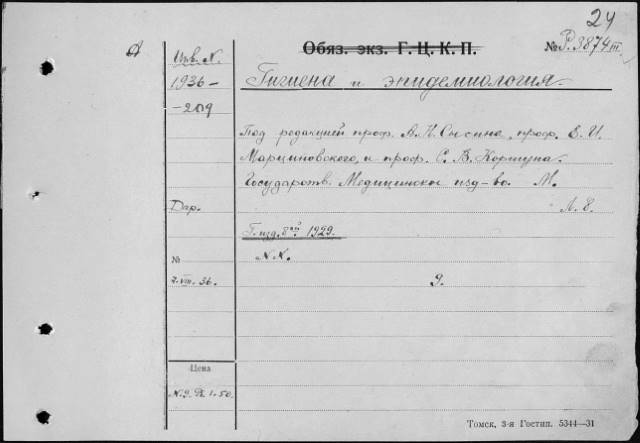 24
А
Инв. N.
Обяз. экз. Г. Ц. К. П.
№ Р. 3874 III.
1936—
Гигиена и эпидемиология.
—209
Под редакцией проф. А. Н. Сысина, проф. Е. И.
Марциновского, и проф. С. В. Коршуна.
Государств. Медицинское изд-во. М.
Дар.
Г. изд. 8ой 1929.
№
N. N.
7-VIII-36.
9.
Цена
N. 9.
1-50.
Томск, 3-я Гостип. 5344—31